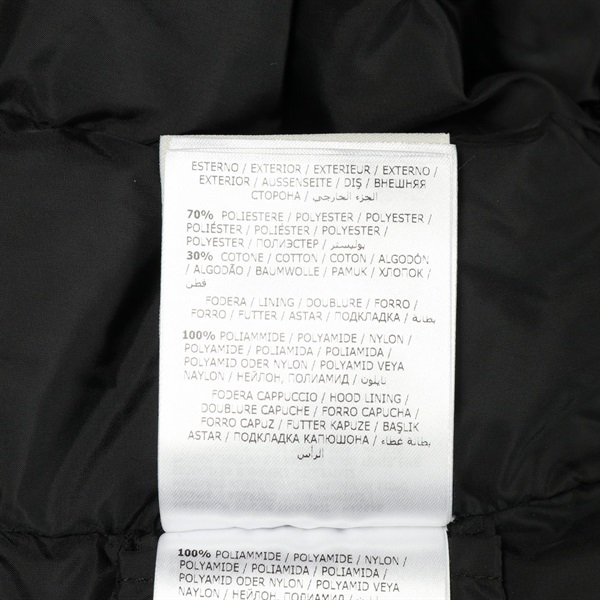 ESTERNO / EXTERIOR / EXTERIEUR / EXTERNO /
EXTERIOR / AUSSENSEITE / DIŞ / ВНЕШНЯЯ
СТОРОНА / الجزء الخارجي
70% POLIESTERE / POLYESTER / POLYESTER /
POLIÉSTER / POLIÉSTER / POLYESTER /
POLYESTER / ПОЛИЭСТЕР / بوليستر
30% COTONE / COTTON / COTON / ALGODÓN
/ ALGODÃO / BAUMWOLLE / PAMUK / ХЛОПОК /
قطن
FODERA / LINING / DOUBLURE / FORRO /
FORRO / FUTTER / ASTAR / ПОДКЛАДКА / بطانة
100% POLIAMMIDE / POLYAMIDE / NYLON /
POLYAMIDE / POLIAMIDA / POLIAMIDA /
POLYAMID ODER NYLON / POLYAMID VEYA
NAYLON / НЕЙЛОН, ПОЛИАМИД / نايلون
FODERA CAPPUCCIO / HOOD LINING /
DOUBLURE CAPUCHE / FORRO CAPUCHA /
FORRO CAPUZ / FUTTER KAPUZE / BAŞLIK
ASTAR / ПОДКЛАДКА КАПЮШОНА / بطانة غطاء
الرأس
100% POLIAMMIDE / POLYAMIDE / NYLON /
POLYAMIDE / POLIAMIDA / POLIAMIDA /
POLYAMID ODER NYLON / POLYAMID VEYA